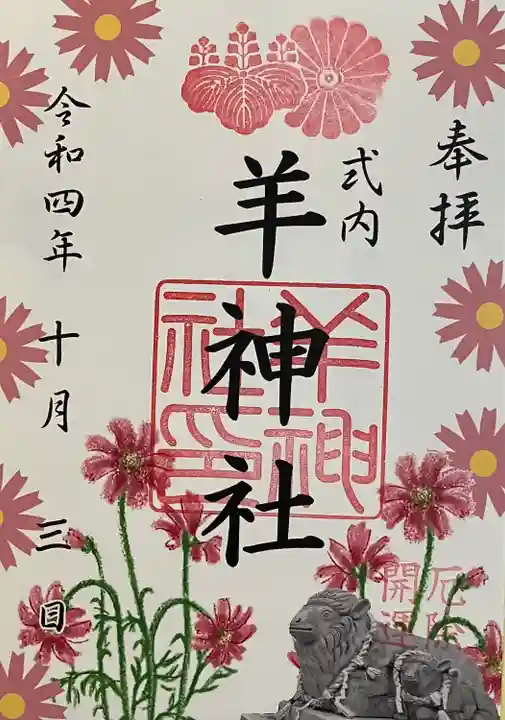 奉拝
式内
羊神社
羊神社印
厄除
開運
令和四年 十月 三日